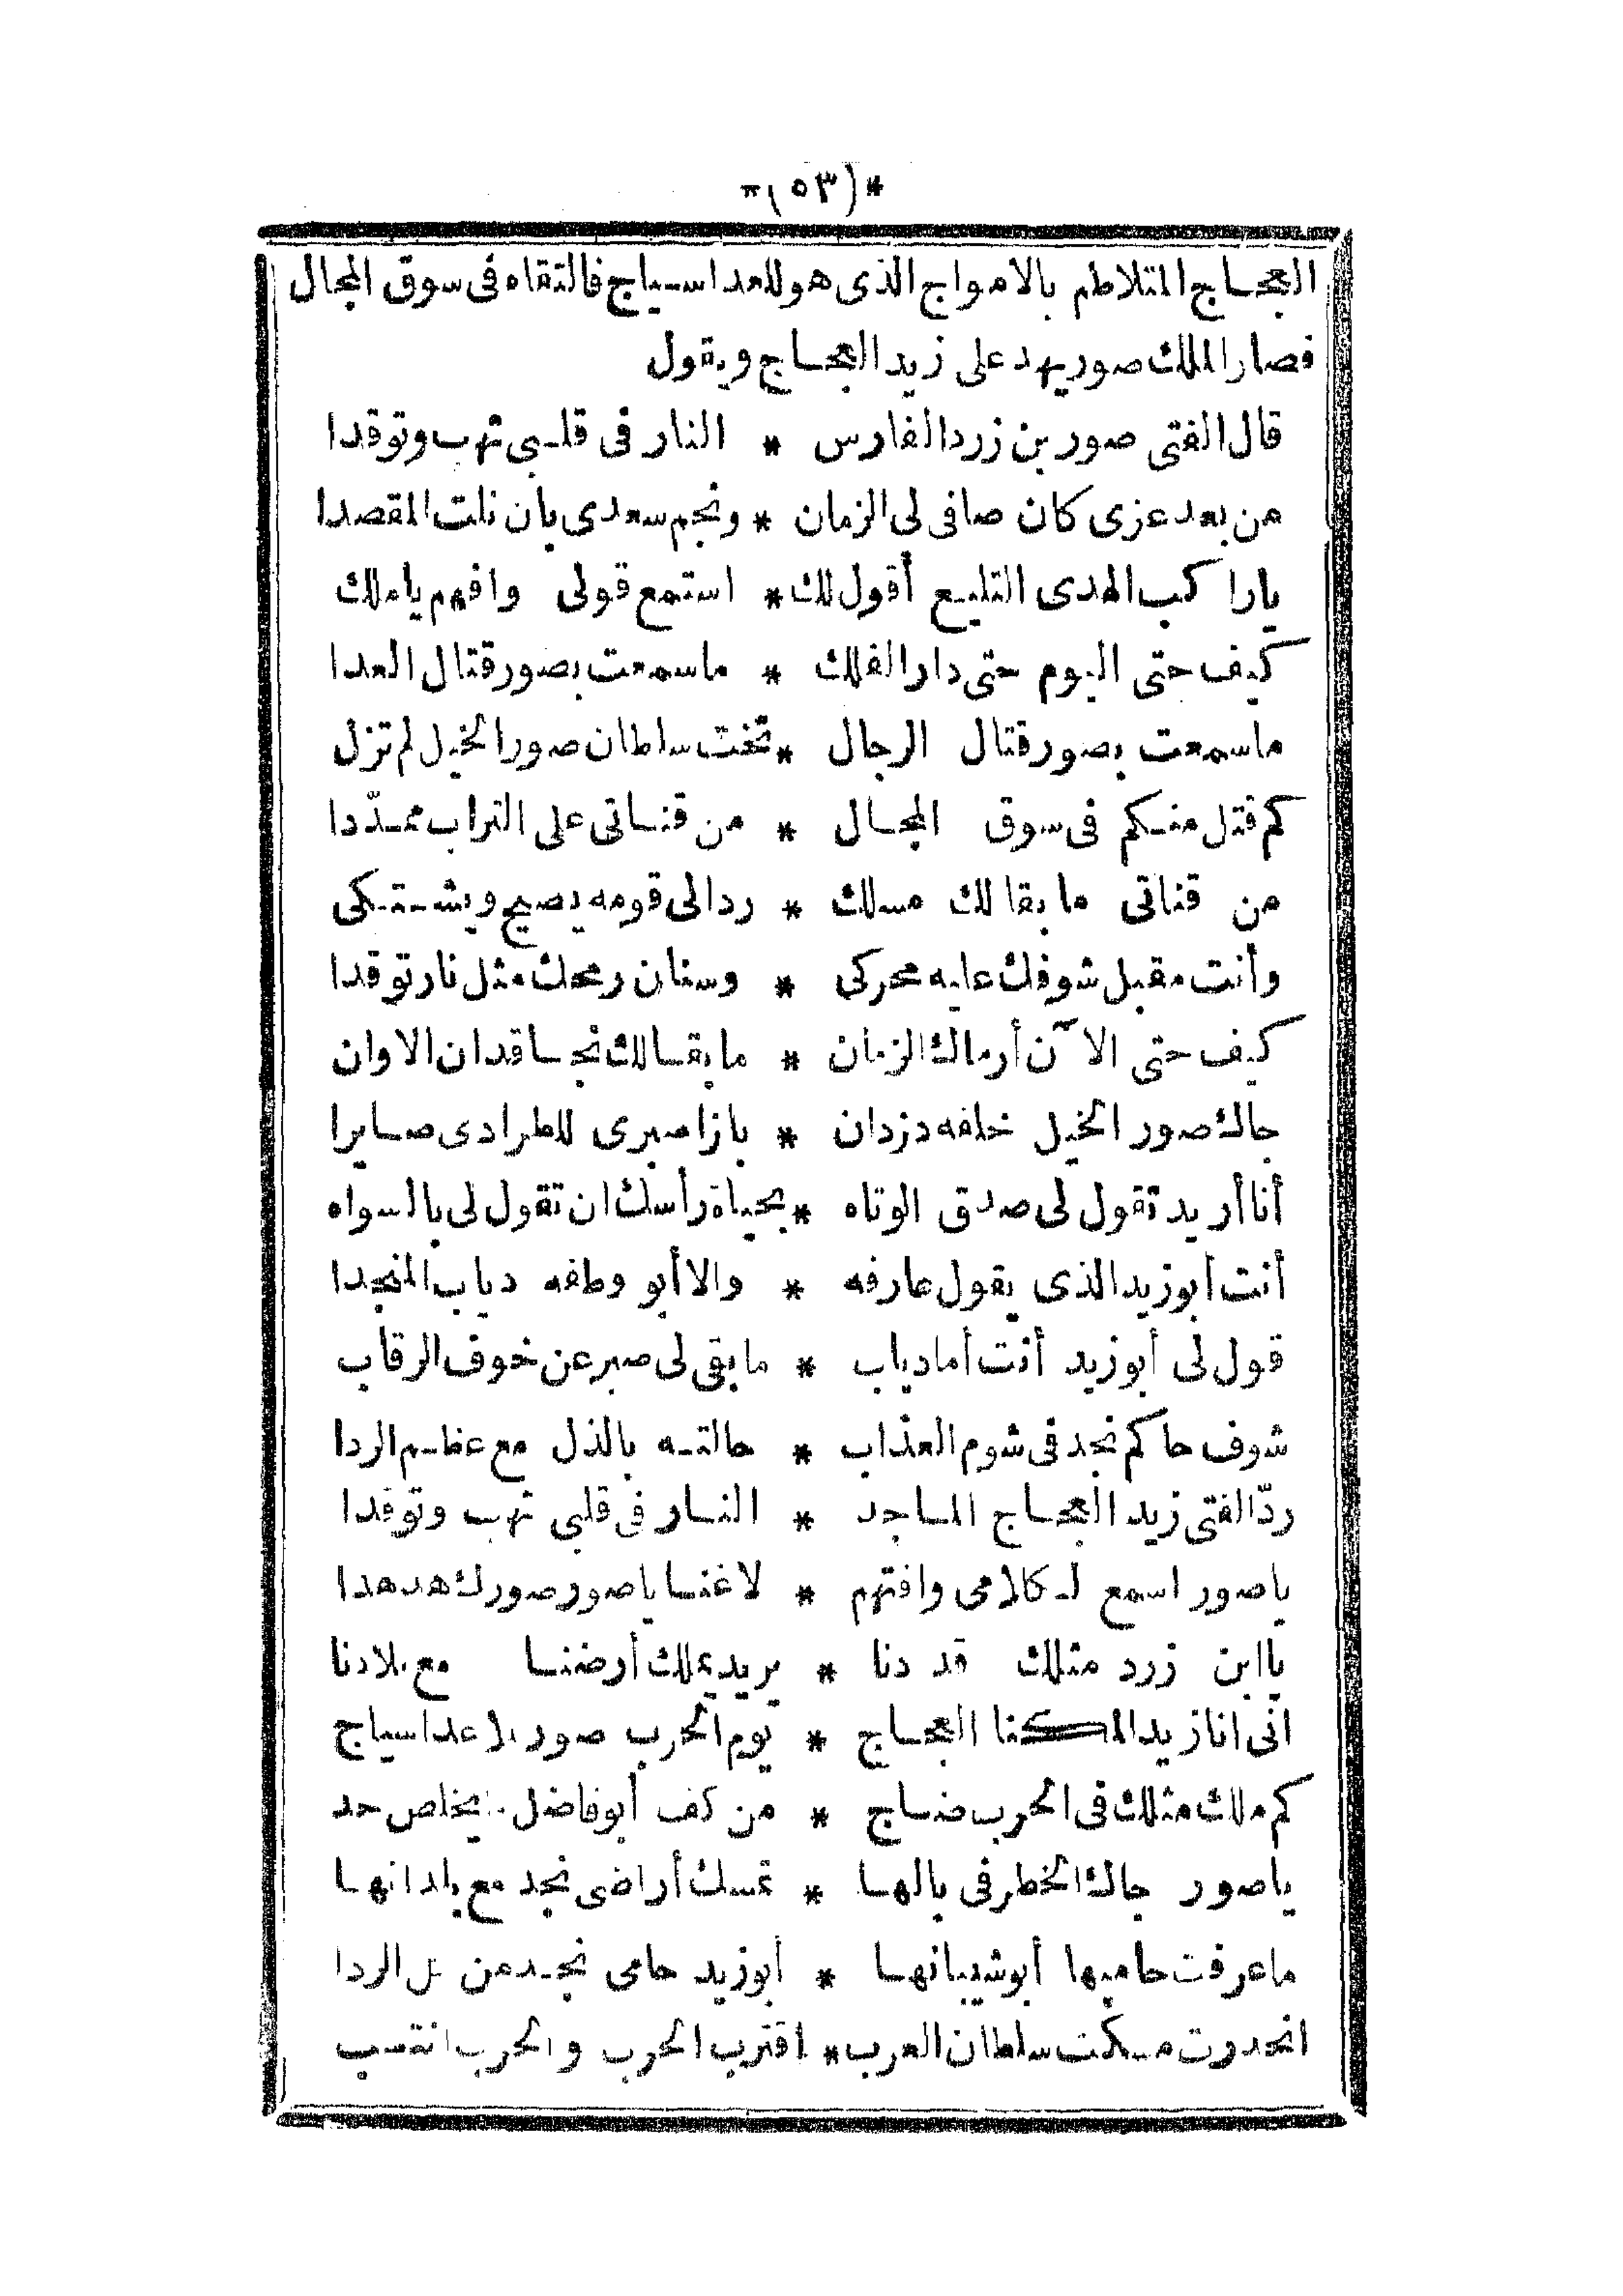 *(٥٣)*
العجاج المتلاطم بالامواج الذى هو للعدا سياج فالتقاه فى سوق المجال
فصار الملك صور يهد على زيد العجاج ويقول
قال الفتى صور بن زرد الفارس * النار فى قلبى تهب وتوقدا
من بعد عزى كان صافى لى الزمان * ونجم سعدى بان نلت المقصدا
يا راكب الهدى التليع أقول لك * استمع قولى وافهم يا ملك
كيف حتى اليوم حتى دار الفلك * ما سمعت بصور قتال العدا
ما سمعت بصور قتال الرجال * تخت سلطان صور الخيل لم تزل
كم قتل منكم فى سوق المجال * من قناتى على التراب ممدّدا
من قناتى ما بقا لك مسلك * رد الى قومه يصيح ويشتكى
وأنت مقبل شوفك عليه محركى * وسنان رمحك مثل نار توقدا
كيف حتى الآن أرماك الزمان * ما بقا لك نجا قد ان الاوان
جاك صور الخيل خلفه دزدان * باز اصبرى للطرادى صابرا
أنا أريد تقول لى صدق الوتاه * بحياة رأسك ان تقول لى بالسواه
أنت أبو زيد الذى يقول عارفه * والا أبو وطفه دياب المنجدا
قول لى أبو زيد أنت أما دياب * ما بقى لى صبر عن خوف الرقاب
شوف حاكم نجد فى شوم العذاب * حالته بالذل مع عظيم الردا
ردّ الفتى زيد العجاج الماجد * النار فى قلبى تهب وتوقدا
يا صور اسمع لـكلامى وافتهم * لا غنا يا صور صورك هدهدا
يا ابن زرد مثلك قد دنا * يريد يملك أرضنا مع بلادنا
انى انا زيد المكنا العجاج * يوم الحرب صور لاعدا سياج
كم ملك مثلك فى الحرب ضاج * من كف أبو فاضل يخلص حد
يا صور جاك الخطر فى بالها * تمسك أراضى نجد مع بلدانها
ما عرفت حاميها أبو شيبانها * أبو زيد حامى نجد من الردا
انحدرت مسكت سلطان العرب * اقترب الحرب والحرب انتسب